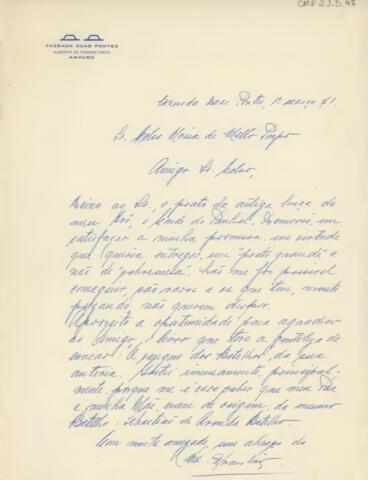 CMP 2.1.5.42
FAZENDA DUAS PONTES
ALBERTO DE MORAES PINTO
AMPARO
Fazenda Duas Pontes, 1º março 71.
Sr. Celso Maria de Mello Pupo
Amigo Sr. Celso,
Deixo ao Sr. o prato da antiga louça do
meu Avô, o Conde do Pinhal. Demorei, em
satisfazer a minha promessa, em virtude
que queria entregar, um "prato grande" e
não de "sobremesa". Não me foi possivel
conseguir, pois raros e os que tem, muito
prezando não querem dispor.
Aproveito a oportunidade para agradecer
ao Amigo, o livro que teve a gentileza de
enviar: A origem dos Botelhos, da sua
autoria. Gostei imensamente, principal-
mente, porque me é caro saber que meu Pae
e minha Mãe, eram de origem, do mesmo
Botelho: Sebastião de Arruda Botelho.
Com muita amizade, um abraço do